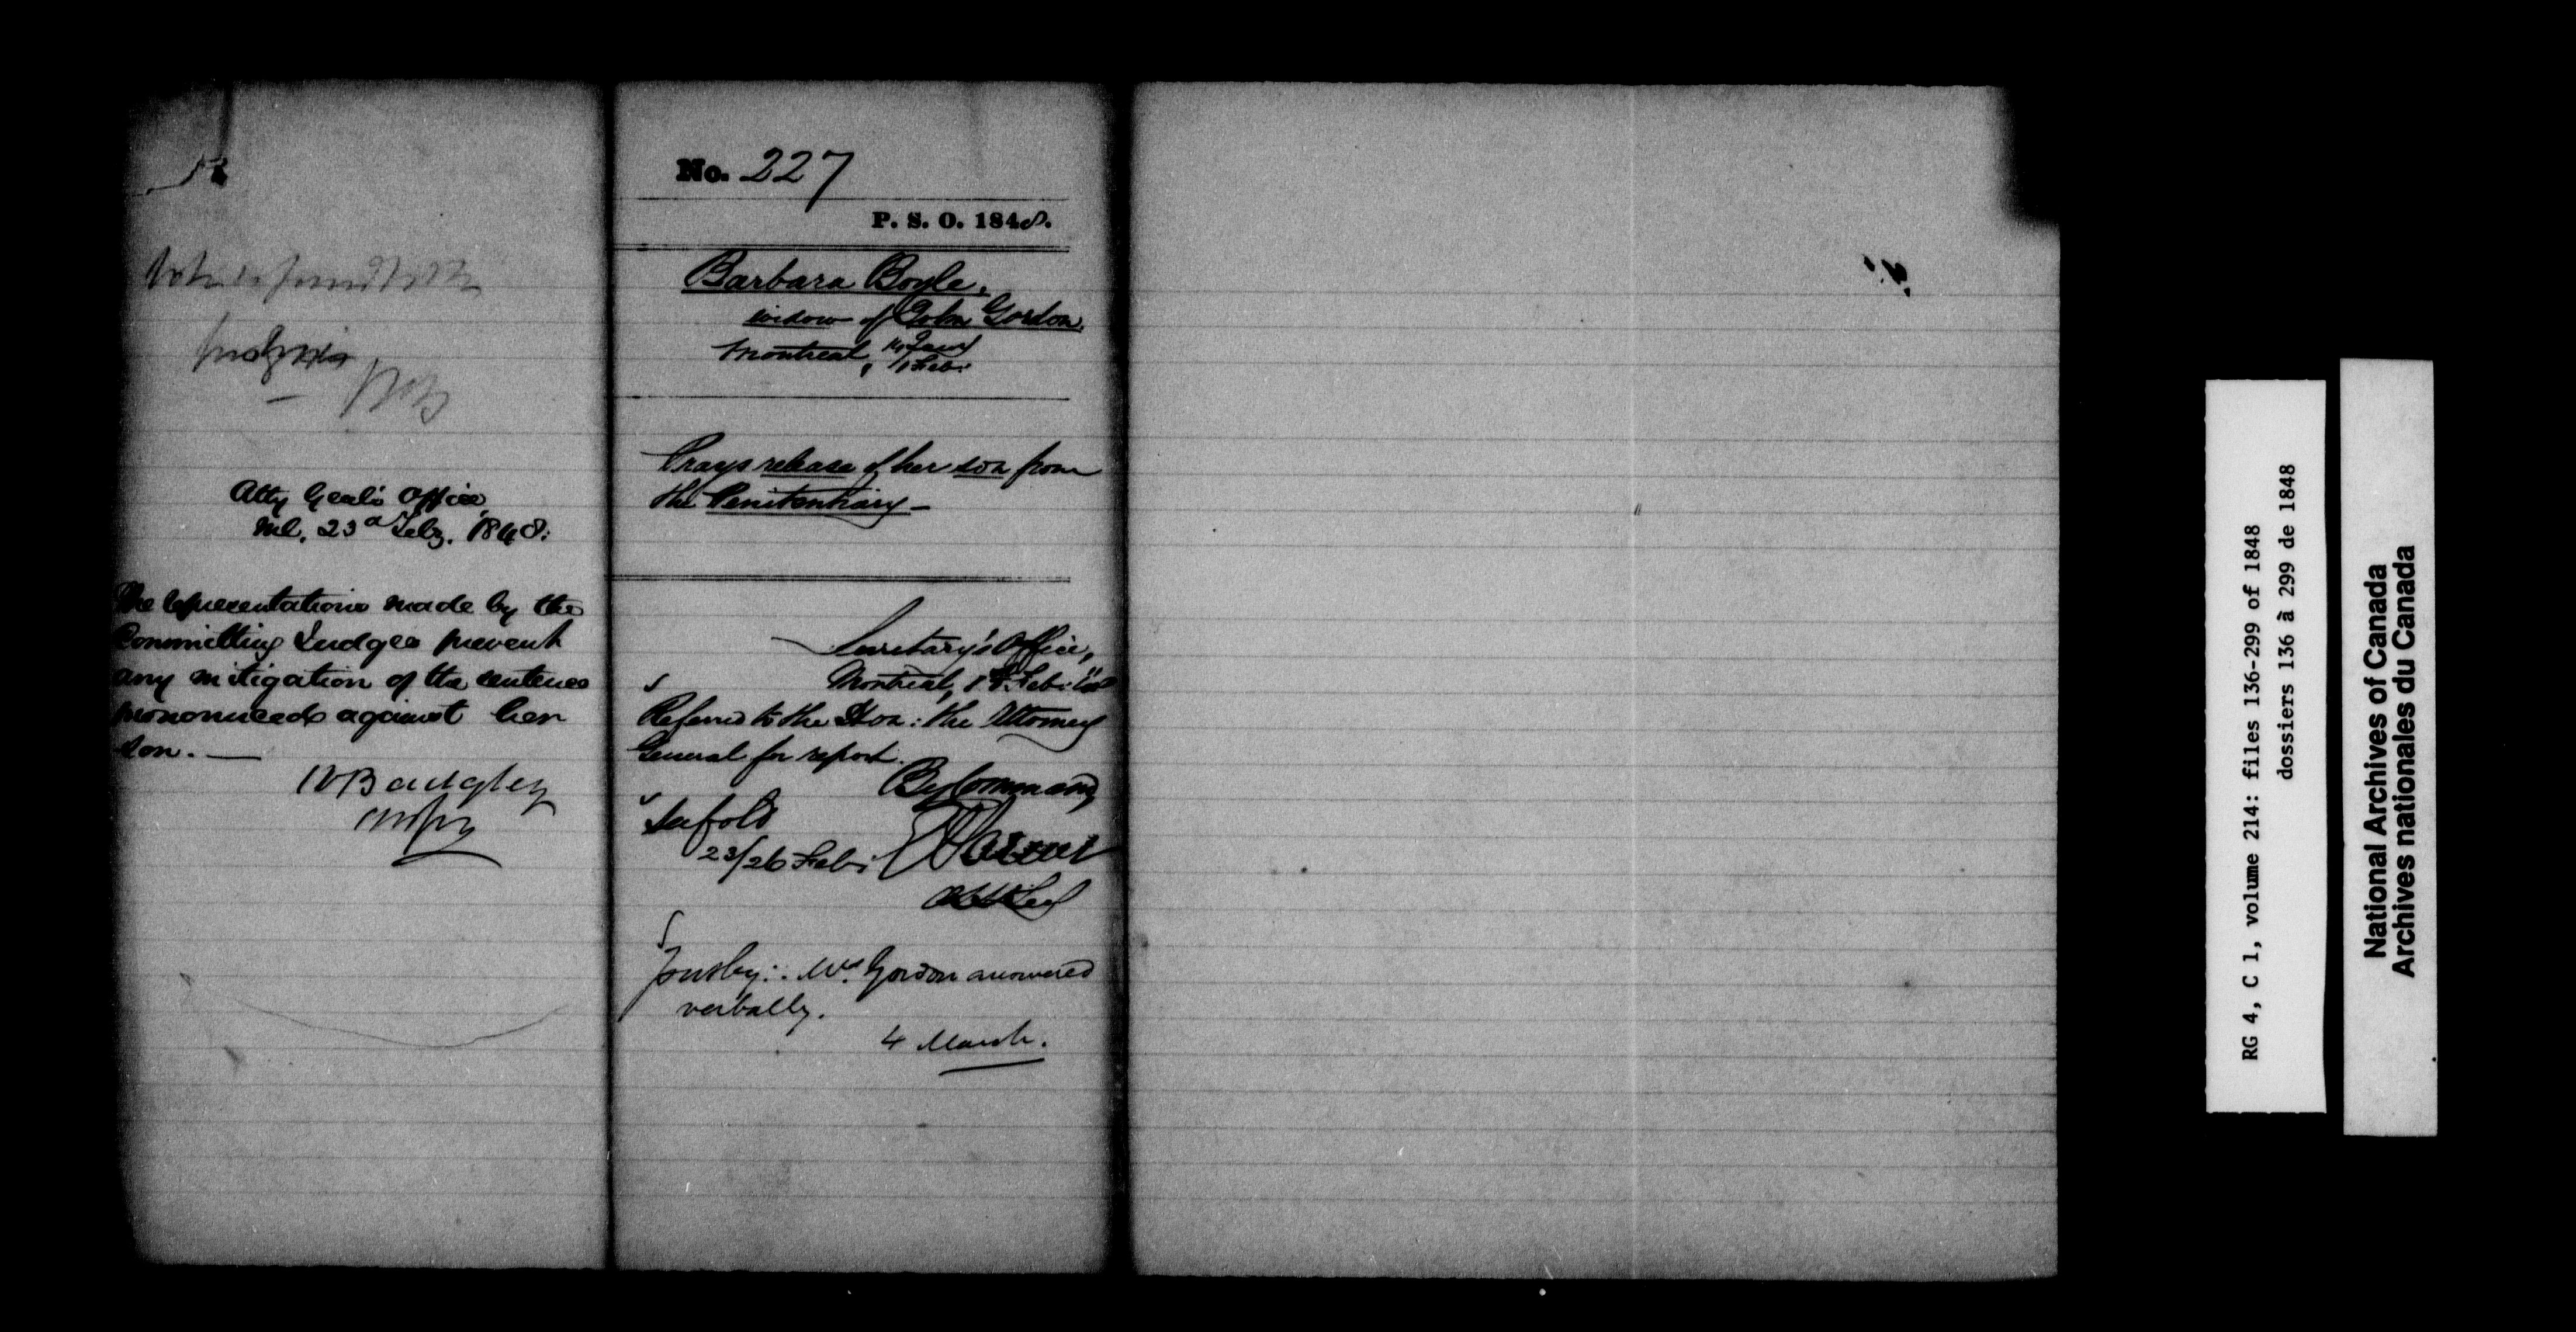 Atty Genl's Office
Ml, 23d Feby. 1848.
The representations made by the
Committing Judges prevent
any mitigation of the sentence
pronounced against her
son. —
Wm Badgley
No. 227
P. S. O. 1848.
Barbara Boyle,
widow of John Gordon,
Montreal,
Feb:
Prays release of her son from
the Penitentiary —
Secretary's Office,
Montreal, Feb:
Referred to the Hon: the Attorney
General for report.
By Command,
23/26 Feb:
Mrs. Gordon answered
verbally.
4 March.
RG 4, C 1, volume 214: files 136-299 of 1848
dossiers 136 à 299 de 1848
National Archives of Canada
Archives nationales du Canada